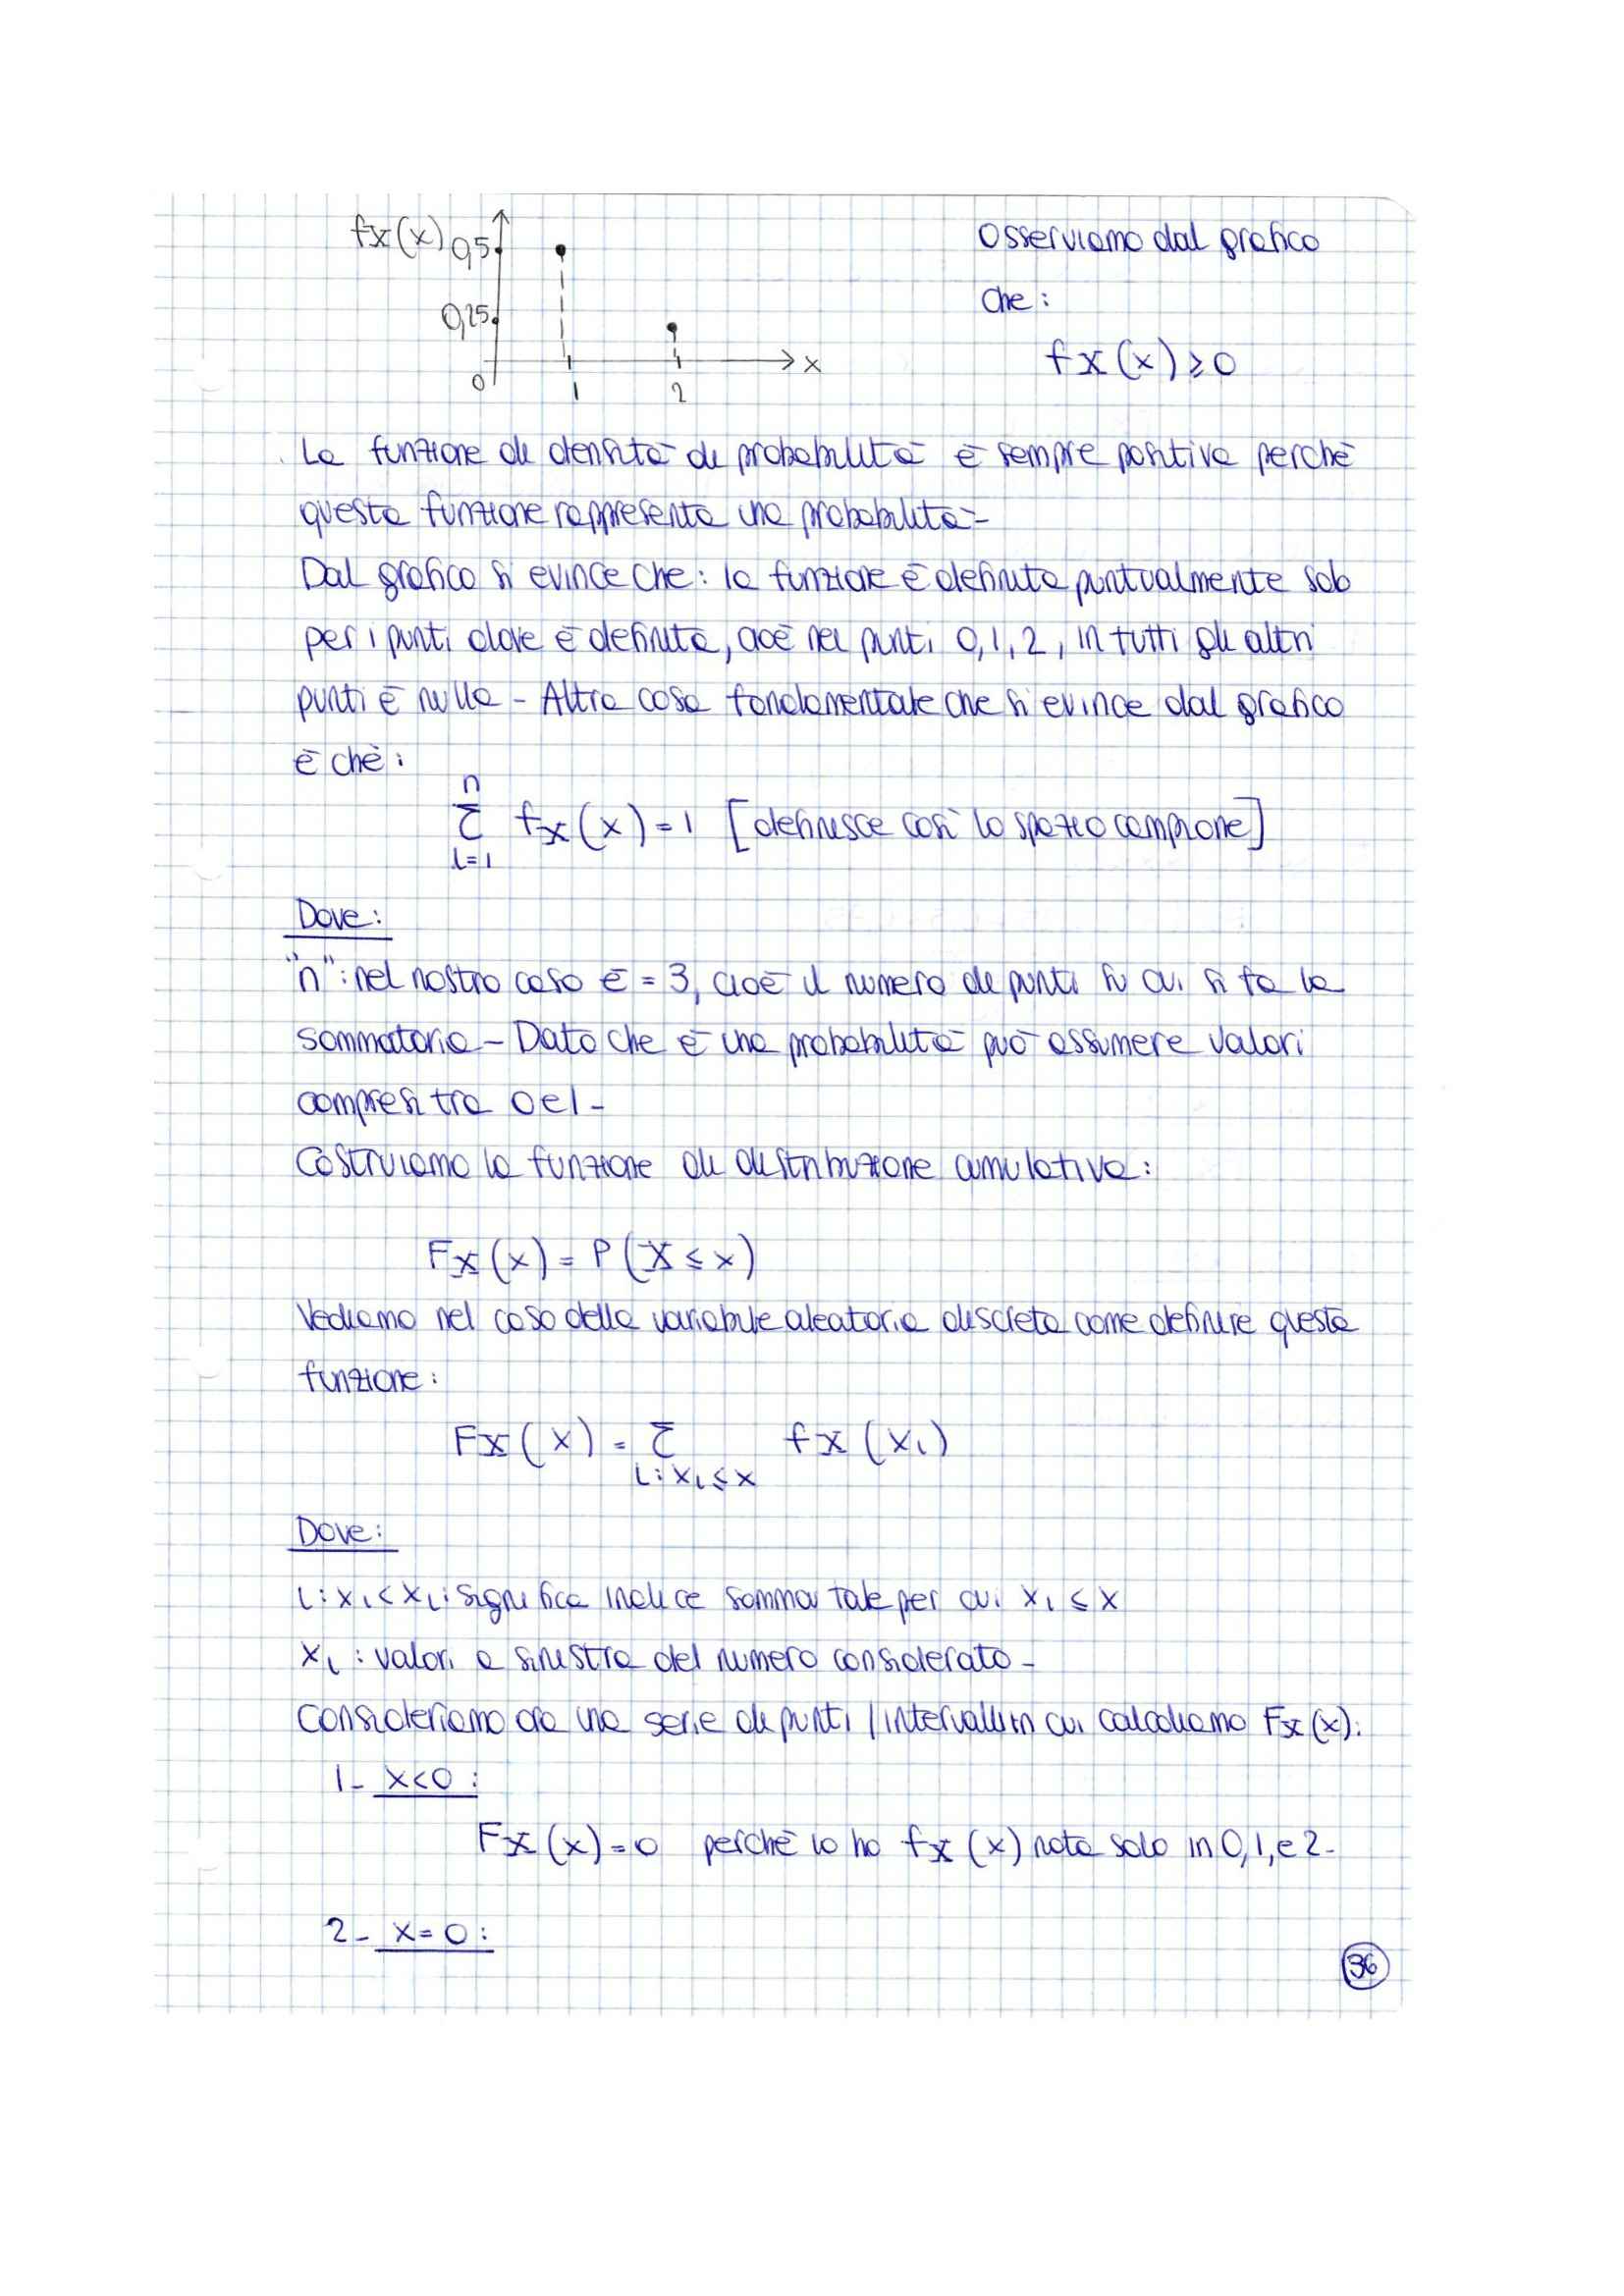 fX(x) 0,5
0,25
0
1
2
x
Osserviamo dal grafico
che:
fX(x) ≥ 0
La funzione di densità di probabilità è sempre positiva perchè
questa funzione rappresenta una probabilità-
Dal grafico si evince che: la funzione è definita puntualmente solo
per i punti dove è definita, cioè nei punti 0,1,2, in tutti gli altri
punti è nulla - Altra cosa fondamentale che si evince dal grafico
è chè:
n
Σ fX(x) = 1 [definisce così lo spazio campione]
i=1
Dove:
"n": nel nostro caso è = 3, cioè il numero di punti su cui si fa la
sommatoria - Dato che è una probabilità può assumere valori
compresi tra 0 e 1 -
Costruiamo la funzione di distribuzione cumulativa:
FX(x) = P(X ≤ x)
Vediamo nel caso della variabile aleatoria discreta come definire questa
funzione:
FX(x) = Σ fX(xi)
i: xi ≤ x
Dove:
i: xi < xi: significa indice somma tale per cui xi ≤ x
xi: valori a sinistra del numero considerato -
Consideriamo ora una serie di punti / intervalli in cui calcoliamo FX(x):
1- x<0:
FX(x) = 0 perchè io ho fX(x) nota solo in 0,1, e 2-
2- x=0:
36